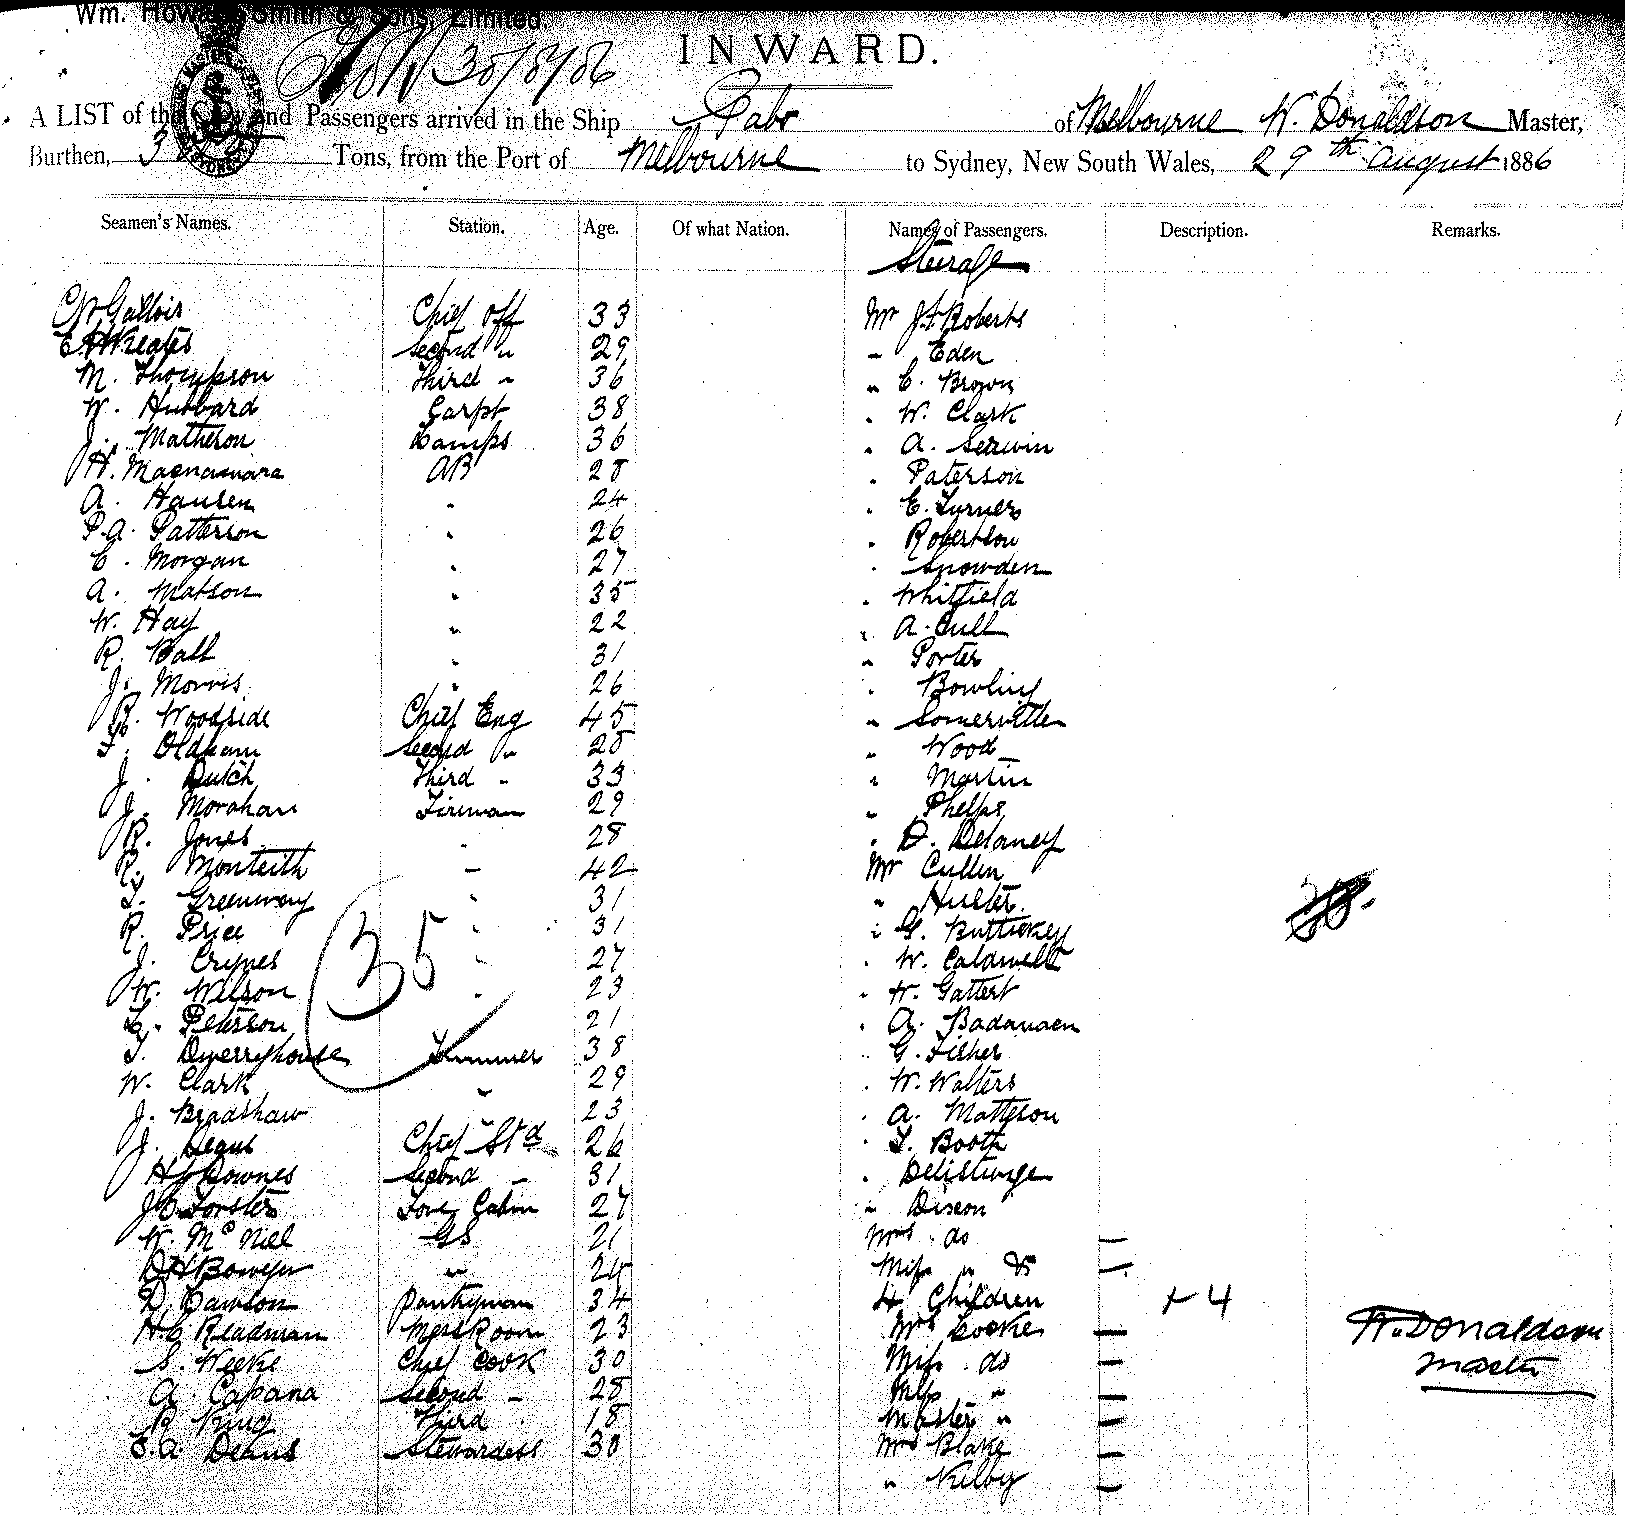 Wm. Howard Smith & Sons, Limited
30/8/86
INWARD.
A LIST of the Crew and Passengers arrived in the Ship Gabo of Melbourne W. Donaldson Master,
Burthen, 3 Tons, from the Port of Melbourne to Sydney, New South Wales, 29th August 1886
Seamen's Names. Station. Age. Of what Nation. Names of Passengers. Description. Remarks.
Steerage
Chief Off 33 Mr J. Roberts
Second " 29 " Eden
M. Thompson Third " 36 " C. Brown
W. Hubbard Carpt 38 " W. Clark
J. Matheson Lamps 36 " A. Serwin
H. Macnamara AB 28 " Paterson
A. Hansen " 24 " E. Turner
P.A. Patterson " 26 " Robertson
C. Morgan " 27 " Snowden
A. Matson " 35 " Whitfield
W. Hay " 22 " A. Cull
R. Ball " 31 " Porter
J. Morris " 26 " Bowling
R. Woodside Chief Eng 45 " Somerville
F. Oldham Second " 28 " Wood
J. Dutch Third " 33 " Martin
J. Morahan Fireman 29 " Phelps
R. Jones " 28 " D. Delaney
R. Monteith " 42 Mr Cullen
T. Greenway " 31 " Hunter
R. Price " 31 " G. Buttickey
J. Crynes " 27 " W. Caldwell
W. Wilson " 23 " H. Gattert
Peterson " 21 " A. Badanaen
35
T. Dwerryhouse Trimmer 38 " G. Fisher
W. Clark " 29 " W. Walters
J. Bradshaw " 23 " A. Matteson
J. Deans Chief Std 26 " T. Booth
H. Downes Second " 31 "
J. Forster Fore Cabin 27 " Dixon
W. McNiel GS 21 Mrs do —
D H Bowyer " 24 Miss " do —
D. Dawson Pantryman 34 4 Children + 4
H C Readman Mess Room 23 Mrs Cooke —
S. Weeke Chief Cook 30 Miss do —
A. Capana Second " 28 Miss " —
R King Third 18 Master " —
E. A. Deans Stewardess 30 Mrs Blake —
" Kilby —
W. Donaldson
Master